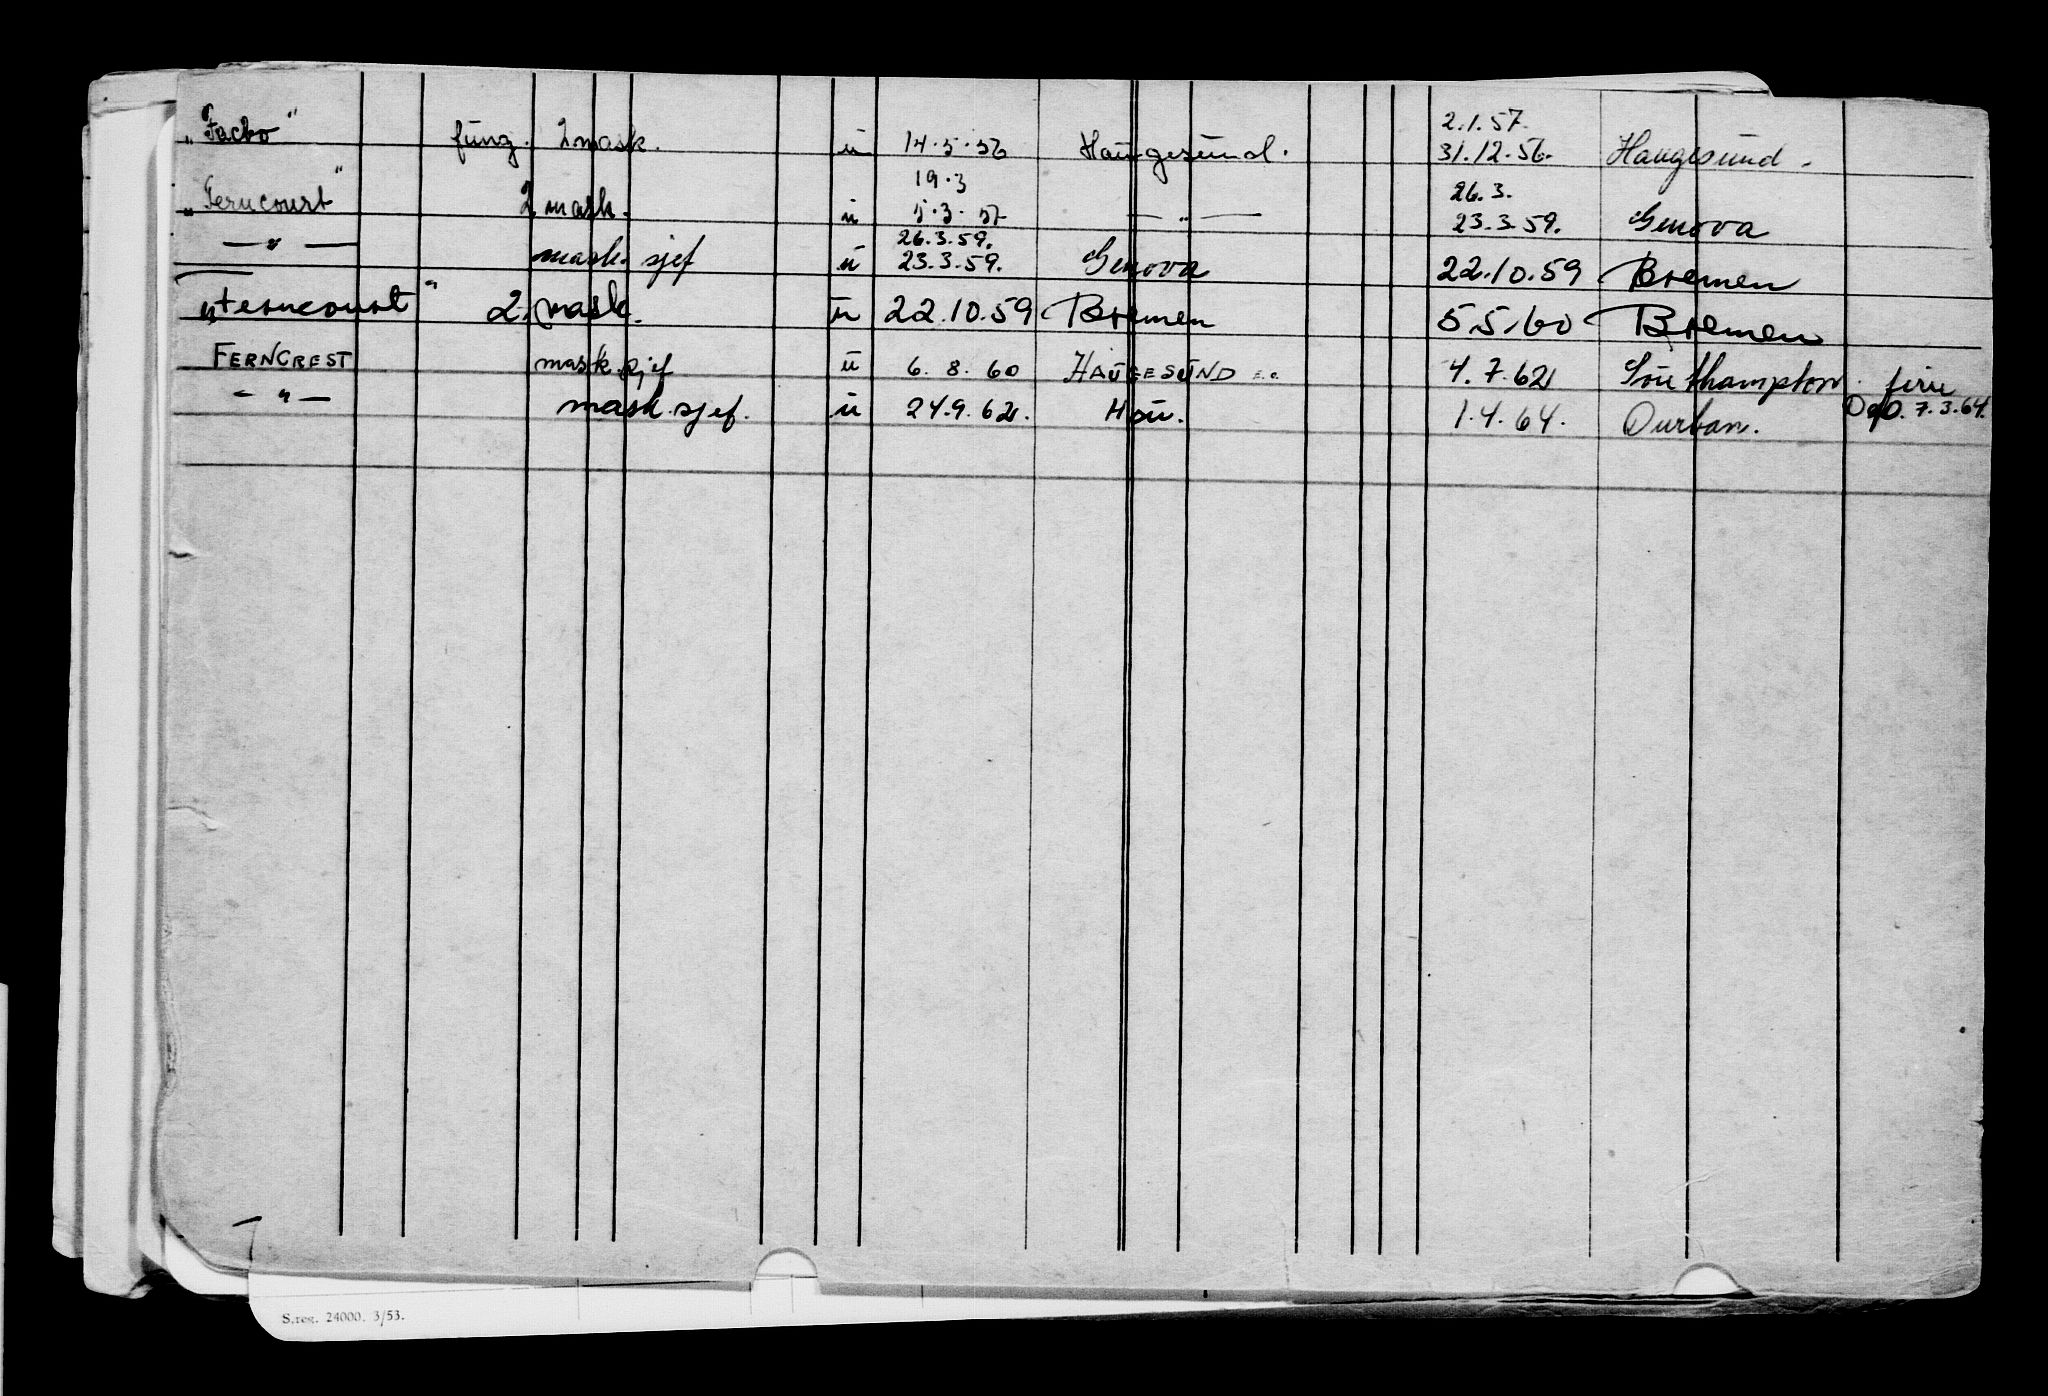 2.1.57.
"Facto" fung. 2 mask. u 14.5.56 Haugesund. 31.12.56. Haugesund.
19.3 26.3.
"Ferncourt" 2 mask. u 5.3.57 — " — 23.3.59. Genova
26.3.59.
— " — mask. sjef u 23.3.59. Genova 22.10.59 Bremen
"Ferncourt" 2. mask. u 22.10.59 Bremen 5.5.60 Bremen
FERNCREST mask.sjef u 6.8.60 HAUGESUND 4.7.62 Southampton. ferie
— " — mask.sjef. u 24.9.62. Hau. 1.4.64. Durban. Opp. 7.3.64.
S.reg. 24000. 3/53.